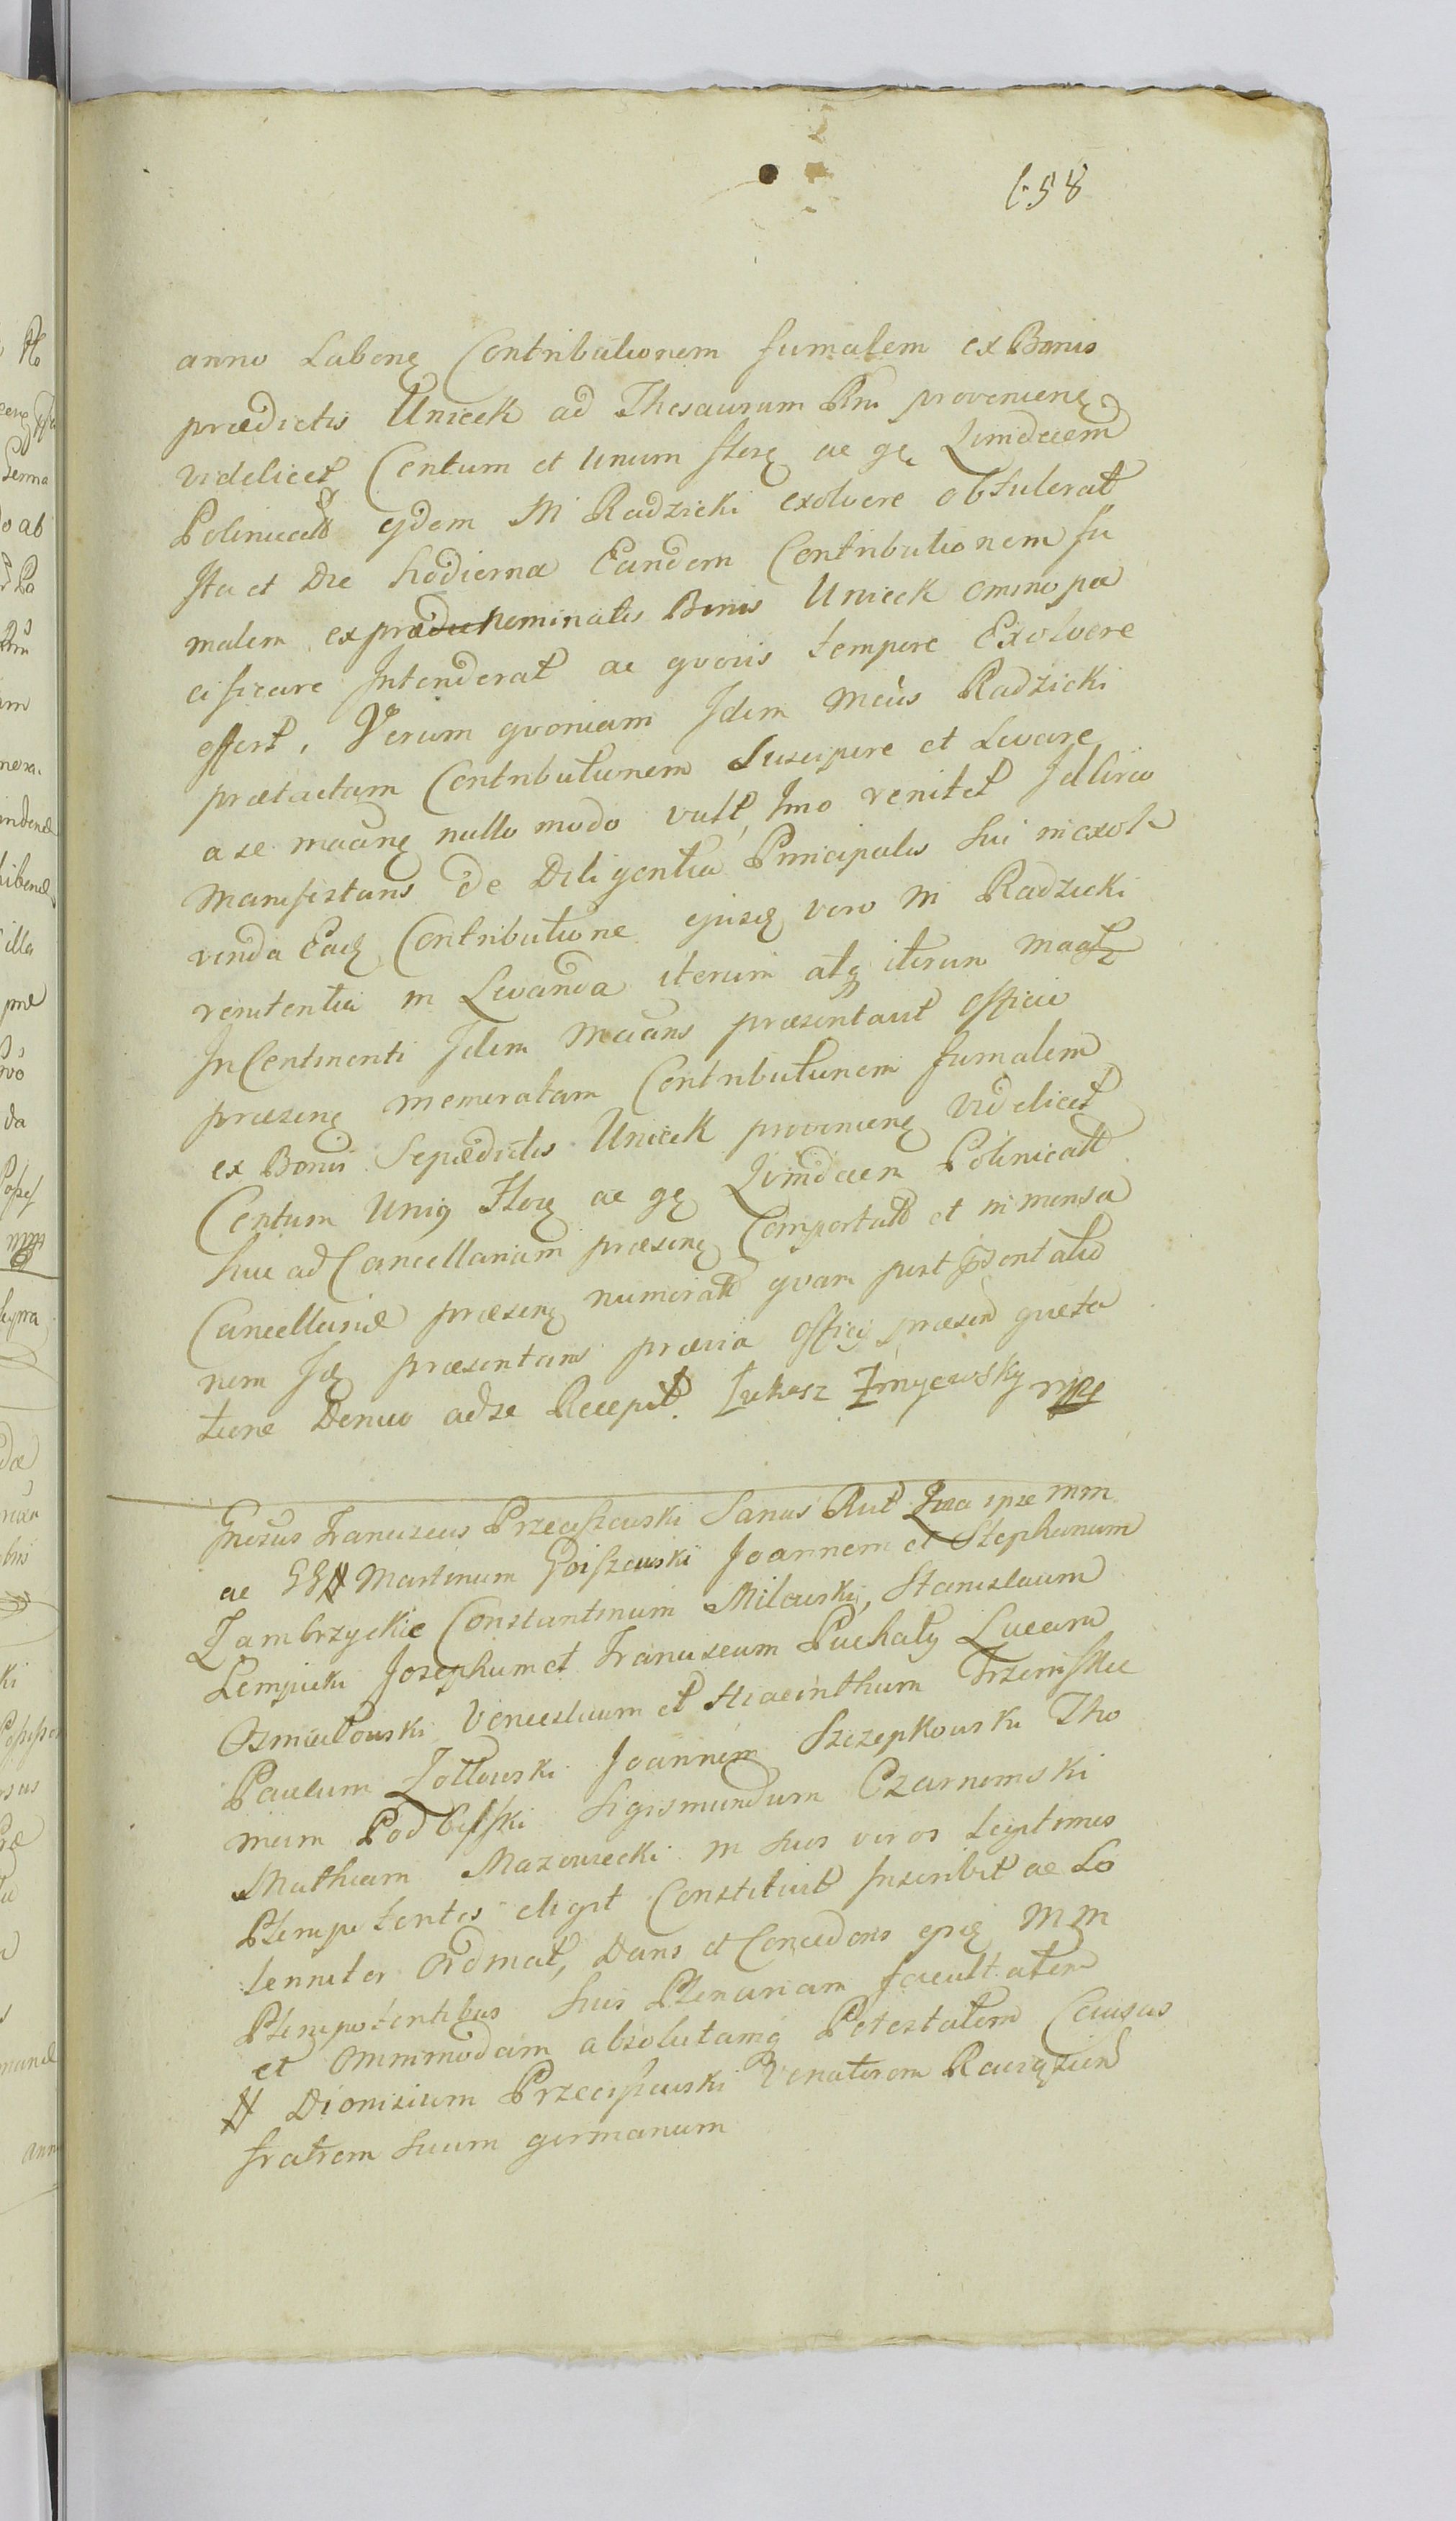 658
anno Labenę Contributionem fumalem ex Bonis
prædictis Unieck ad Thesaurum Rni provenienę
videlicet Centum et unum florę ac gę Quindecem
Polinicall ejdem M Radzicki exolvere obtulerat
Ita et Die hodierna Eandem Contributionem fu
malem ex præ nominatis Bonis Unieck omino pa
cificare Intenderat ac qvovis tempore Exolvere
offert, Verum qvoniam Idem Mcus Radzicki
prætactam Contributionem Suscipere et Levare
a se maanę nullo modo vult, Imo renitet Idcirco
Manifestans de Diligentia Principalis sui in exol
venda Eadę Contributione ejusę vero M Radzicki
renitentia in Levanda iterum atq iterum
In Continenti Idem Maans præsentavit officio
præsenę memoratam Contributionem fumalem
ex Bonis Sepædictis Unieck provenienę videlicet
Centum Uniq Florę ac gę Quindecem Polinicall
huc ad Cancellariam præsenę Comportall et in mensa
Cancellariæ præsenę numerall qvam post pdentatio
nem Idę præsentans prævia officij præsen quieta
tione Denuo ad se Recepit. Lukasz Zmyewsky mpp
Gnosus Franciscus Przeciszewski Sanus Rut Qua ipse mm
ac GG # Martinum Goiszewski Joannem et Stephanum
Zambrzyckie Constantinum Milewski, Stanislaum
Lempicki Josephum et Franciscum Puchaly Lucam
Osmiałowski Venceslaum et Hiacinthum Trzeinskie
Paulum Zołtowski Joannem Szczepkowski Tho
mam Podbilski Sigismundum Czarnomski
Mathiam Mazowiecki in suos veros Legitimos
Plenipotentes eligit Constituit Inscribit ac So
lenniter Ordinat, Dans et Concedens ejsę MM
Plenipotentibus suis Plenariam facultatem
et Omnimodam absolutamq Potestatem Causas
# Dionisium Przeciszewski Venatorem Raciązien
fratrem suum germanum